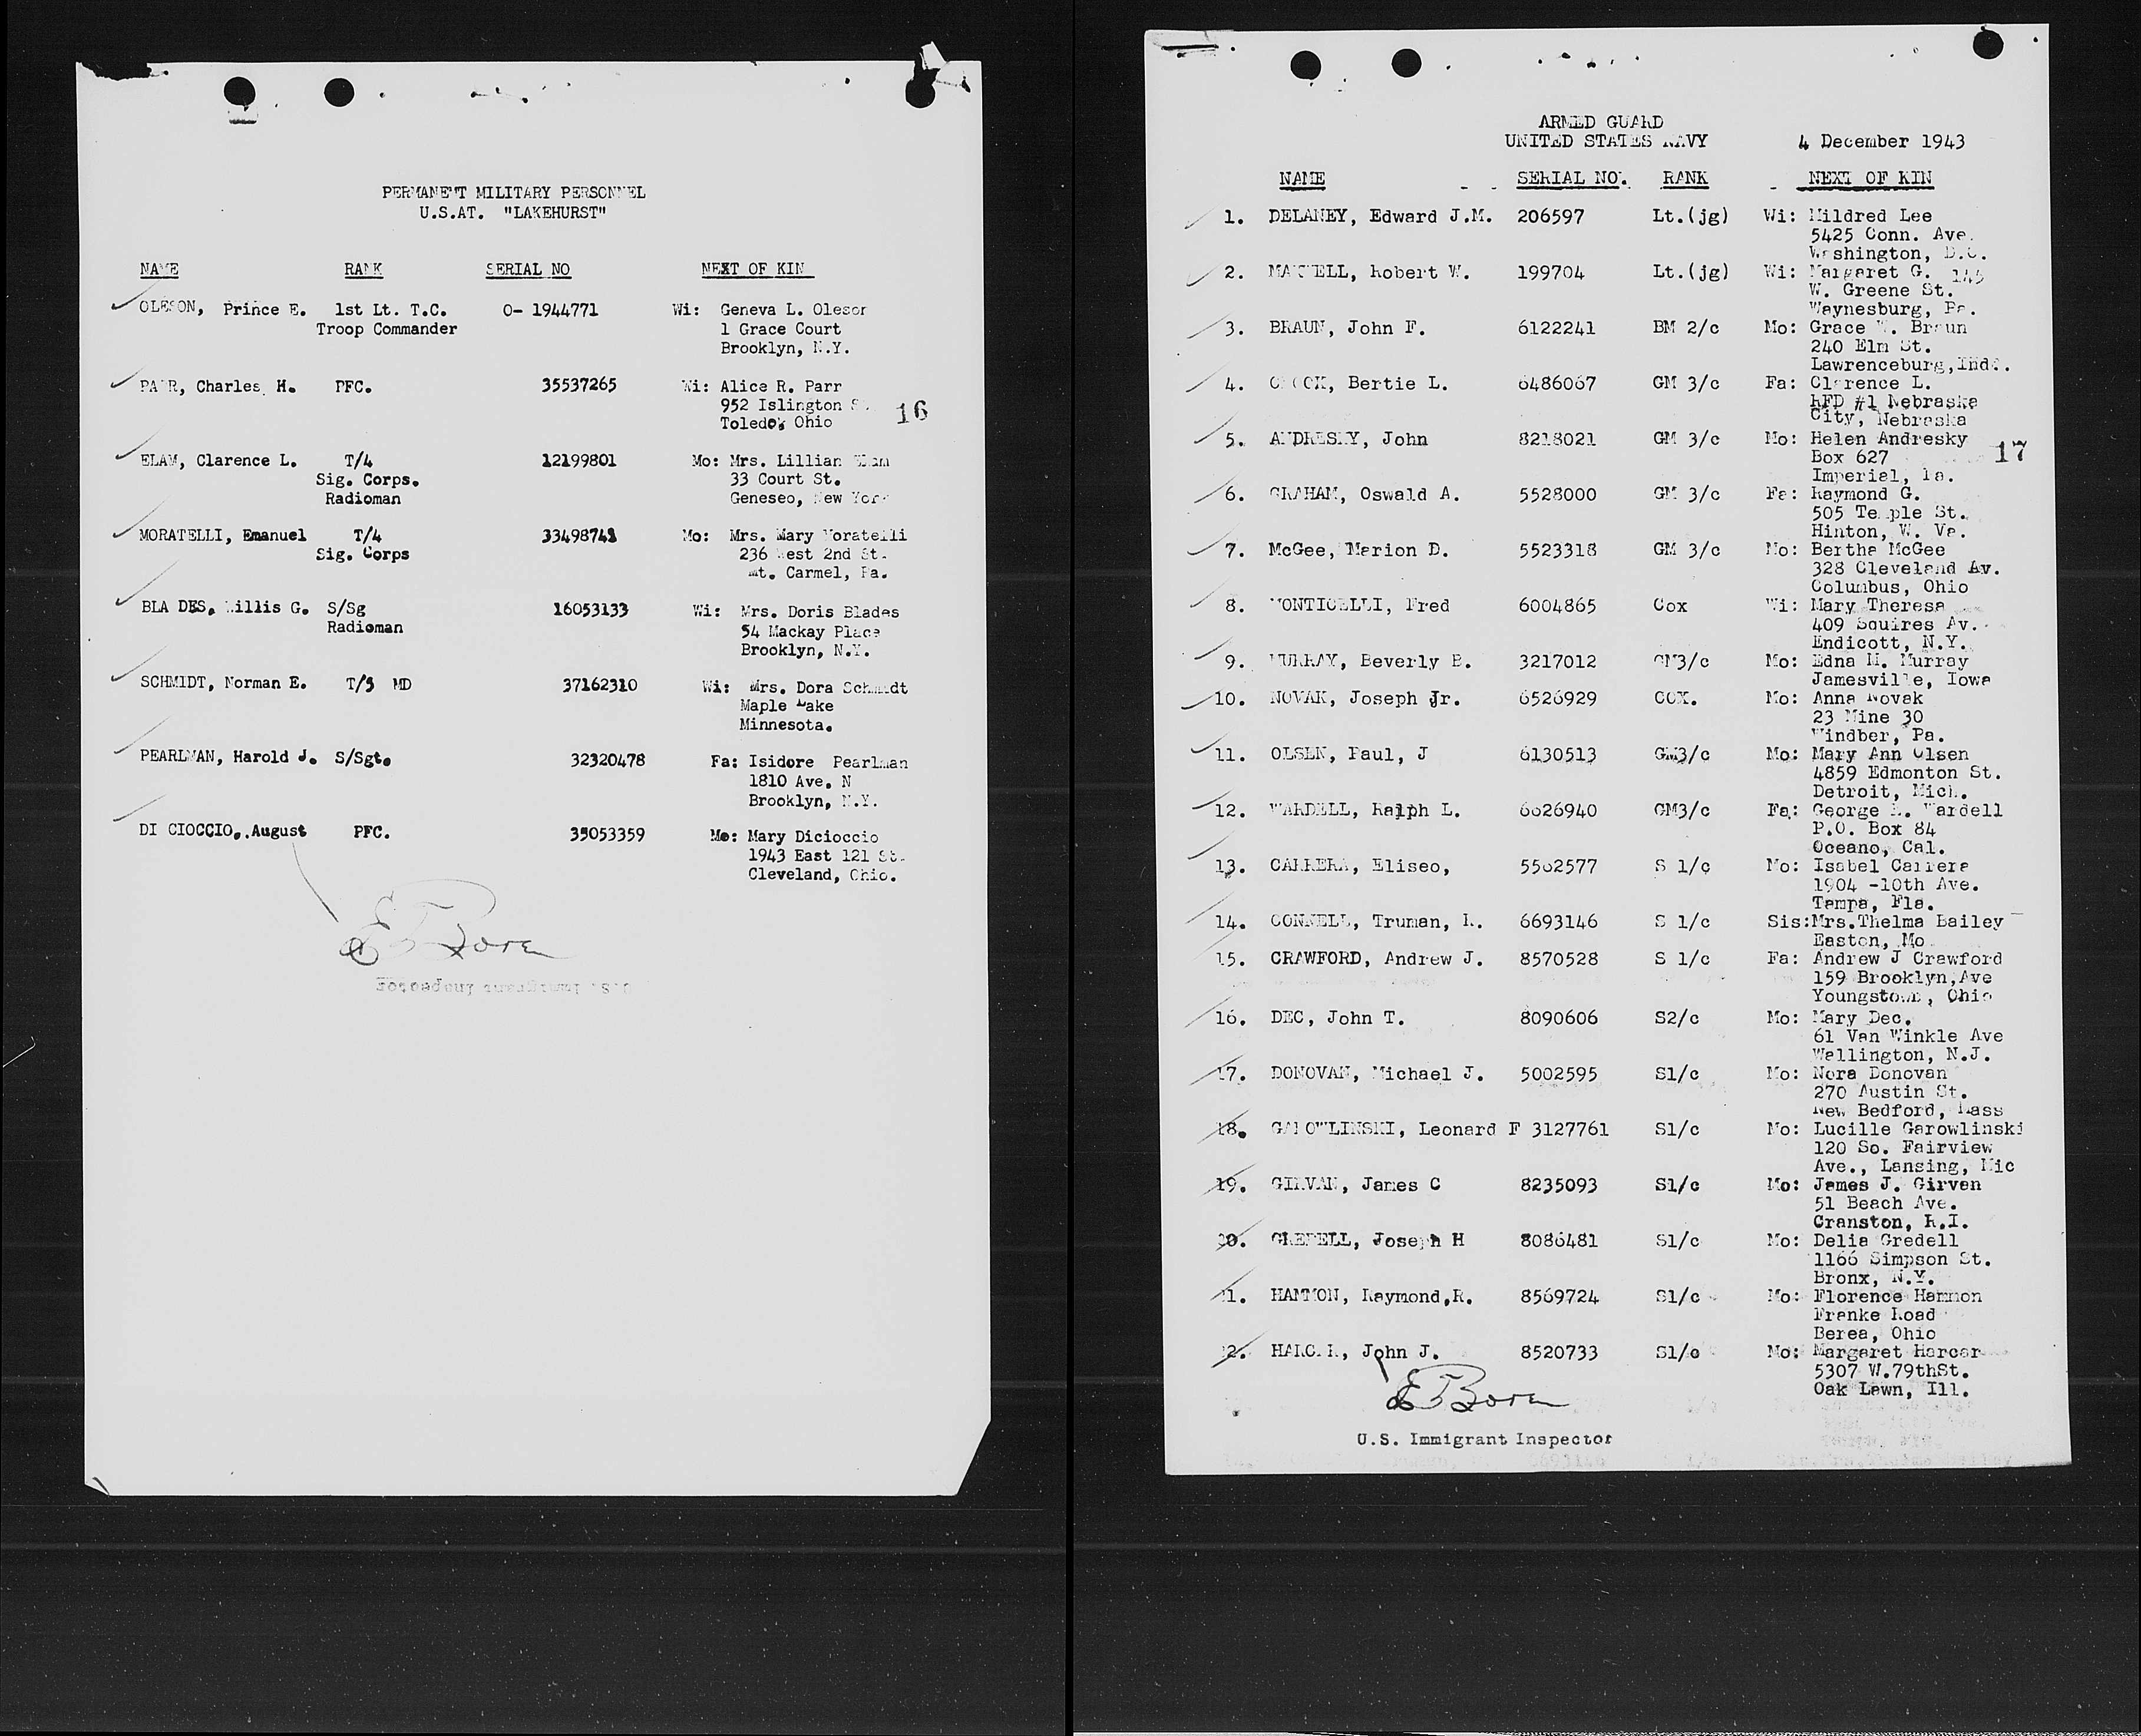 PERMANENT MILITARY PERSONNEL
U.S.AT. "LAKEHURST"
NAME RANK SERIAL NO NEXT OF KIN
OLESON, Prince E. 1st Lt. T.C. O- 1944771 Wi: Geneva L. Oleson
Troop Commander 1 Grace Court
Brooklyn, N.Y.
PARR, Charles H. PFC. 35537265 Wi: Alice R. Parr
952 Islington S.
Toledo, Ohio
16
ELAM, Clarence L. T/4 12199801 Mo: Mrs. Lillian Elam
Sig. Corps. 33 Court St.
Radioman Geneseo, New York
MORATELLI, Emanuel T/4 33498748 Mo: Mrs. Mary Moratelli
Sig. Corps 236 West 2nd St.
Mt. Carmel, Pa.
BLA DES, Willis G. S/Sg 16053133 Wi: Mrs. Doris Blades
Radioman 54 Mackay Place
Brooklyn, N.Y.
SCHMIDT, Norman E. T/5 MD 37162310 Wi: Mrs. Dora Schmidt
Maple Lake
Minnesota.
PEARLMAN, Harold J. S/Sgt. 32320478 Fa: Isidore Pearlman
1810 Ave. N
Brooklyn, N.Y.
DI CIOCCIO,.August PFC. 35053359 Mo: Mary Dicioccio
1943 East 121 St.
Cleveland, Ohio.
E Born
U.S. Immigrant Inspector
ARMED GUARD
UNITED STATES NAVY 4 December 1943
NAME SERIAL NO. RANK NEXT OF KIN
1. DELANEY, Edward J.M. 206597 Lt.(jg) Wi: Mildred Lee
5425 Conn. Ave.
Washington, D.C.
2. MAXWELL, Robert W. 199704 Lt.(jg) Wi: Margaret G. 145
W. Greene St.
Waynesburg, Pa.
3. BRAUN, John F. 6122241 BM 2/c Mo: Grace W. Braun
240 Elm St.
Lawrenceburg, Ind.
4. Bertie L. 6486067 GM 3/c Fa: Clarence L.
RFD #1 Nebraska
City, Nebraska
5. ANDRESKY, John 8218021 GM 3/c Mo: Helen Andresky
Box 627
Imperial, Pa.
17
6. GRAHAM, Oswald A. 5528000 GM 3/c Fa: Raymond G.
505 Temple St.
Hinton, W. Va.
7. McGee, Marion D. 5523318 GM 3/c Mo: Bertha McGee
328 Cleveland Av.
Columbus, Ohio
8. MONTICELLI, Fred 6004865 Cox Wi: Mary Theresa
409 Squires Av.
Endicott, N.Y.
9. MURRAY, Beverly B. 3217012 GM3/c Mo: Edna M. Murray
Jamesville, Iowa
10. NOVAK, Joseph Jr. 6526929 COX. Mo: Anna Novak
23 Mine 30
Windber, Pa.
11. OLSEN, Paul, J 6130513 GM3/c Mo: Mary Ann Olsen
4859 Edmonton St.
Detroit, Mich.
12. WARDELL, Ralph L. 6626940 GM3/c Fa: George L. Wardell
P.O. Box 84
Oceano, Cal.
13. CARRERA, Eliseo, 5562577 S 1/c Mo: Isabel Carrera
1904 -10th Ave.
Tampa, Fla.
14. CONNELL, Truman, R. 6693146 S 1/c Sis:Mrs.Thelma Bailey
Easton, Mo
15. CRAWFORD, Andrew J. 8570528 S 1/c Fa: Andrew J Crawford
159 Brooklyn,Ave
Youngstown, Ohio
16. DEC, John T. 8090606 S2/c Mo: Mary Dec.
61 Van Winkle Ave
Wallington, N.J.
17. DONOVAN, Michael J. 5002595 S1/c Mo: Nora Donovan
270 Austin St.
New Bedford, Mass
18. GAROWLINSKI, Leonard F 3127761 S1/c Mo: Lucille Garowlinski
120 So. Fairview
Ave., Lansing, Mic
19. GIRVAN, James C 8235093 S1/c Mo: James J. Girven
51 Beach Ave.
Cranston, R.I.
20. GREDELL, Joseph H 8086481 S1/c Mo: Delia Gredell
1166 Simpson St.
Bronx, N.Y.
21. HAMMON, Raymond,R. 8569724 S1/c Mo: Florence Hammon
Franke Road
Berea, Ohio
22. HARCAR, John J. 8520733 S1/c Mo: Margaret Harcar
5307 W.79thSt.
Oak Lawn, Ill.
E Born
U.S. Immigrant Inspector